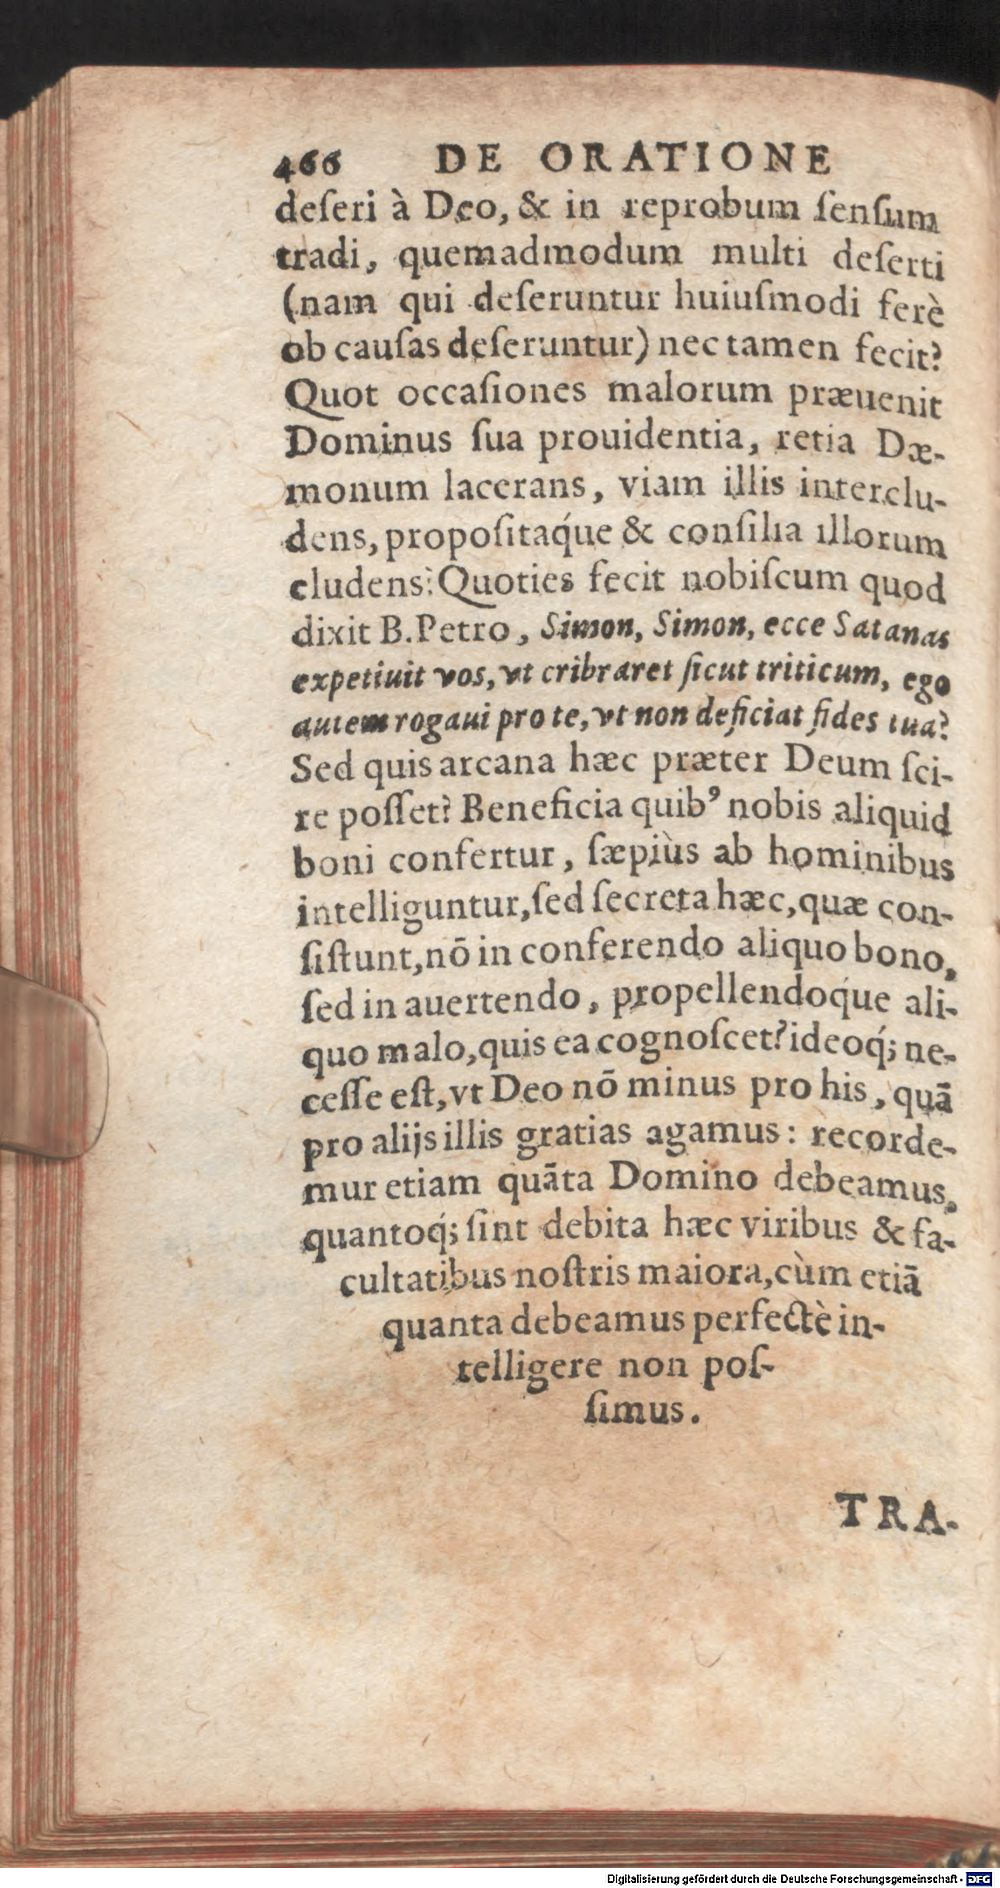 466 DE ORATIONE
deſeri à Deo, & in reprobum ſenſum
tradi, quemadmodum multi deſerti
(nam qui deſeruntur huiuſmodi ferè
ob cauſas deſeruntur) nec tamen fecit?
Quot occaſiones malorum præuenit
Dominus ſua prouidentia, retia Dæ-
monum lacerans, viam illis interclu-
dens, propoſitaq́ue & conſilia illorum
cludens? Quoties fecit nobiſcum quod
dixit B. Petro, Simon, Simon, ecce Satanas
expetiuit vos, vt cribraret ſicut triticum, ego
autem rogaui pro te, vt non deficiat fides tua?
Sed quis arcana hæc præter Deum ſci-
re poſſet? Beneficia quibꝰ nobis aliquid
boni confertur, ſæpiùs ab hominibus
intelliguntur, ſed ſecreta hæc, quæ con-
ſiſtunt, nō in conferendo aliquo bono,
ſed in auertendo, propellendoq́ue ali-
quo malo, quis ea cognoſcet? ideoq́; ne-
ceſſe eſt, vt Deo nō minus pro his, quā
pro alijs illis gratias agamus: recorde-
mur etiam quāta Domino debeamus,
quantoq́; ſint debita hæc viribus & fa-
cultatibus noſtris maiora, cùm etiā
quanta debeamus perfectè in-
telligere non poſ-
ſimus.
TRA-
Digitalisierung gefördert durch die Deutsche Forschungsgemeinschaft - DFG